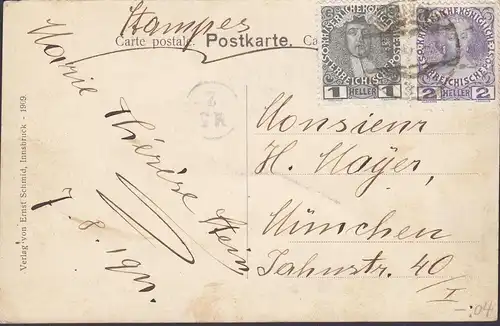 Stampes
Carte postale. Postkarte.
1 HELLER 1
2 HELLER 2
Verlag von Ernst Schmid, Innsbruck - 1909.
Marie
Thérèse Stein
7. 8. 1911.
Monsieur
H. Mayer,
München
Jahnstr. 40/I
-.04